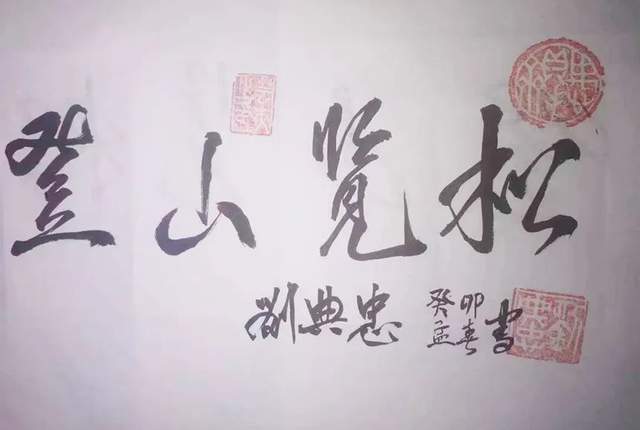 登山览松
劉典忠 癸卯孟春書